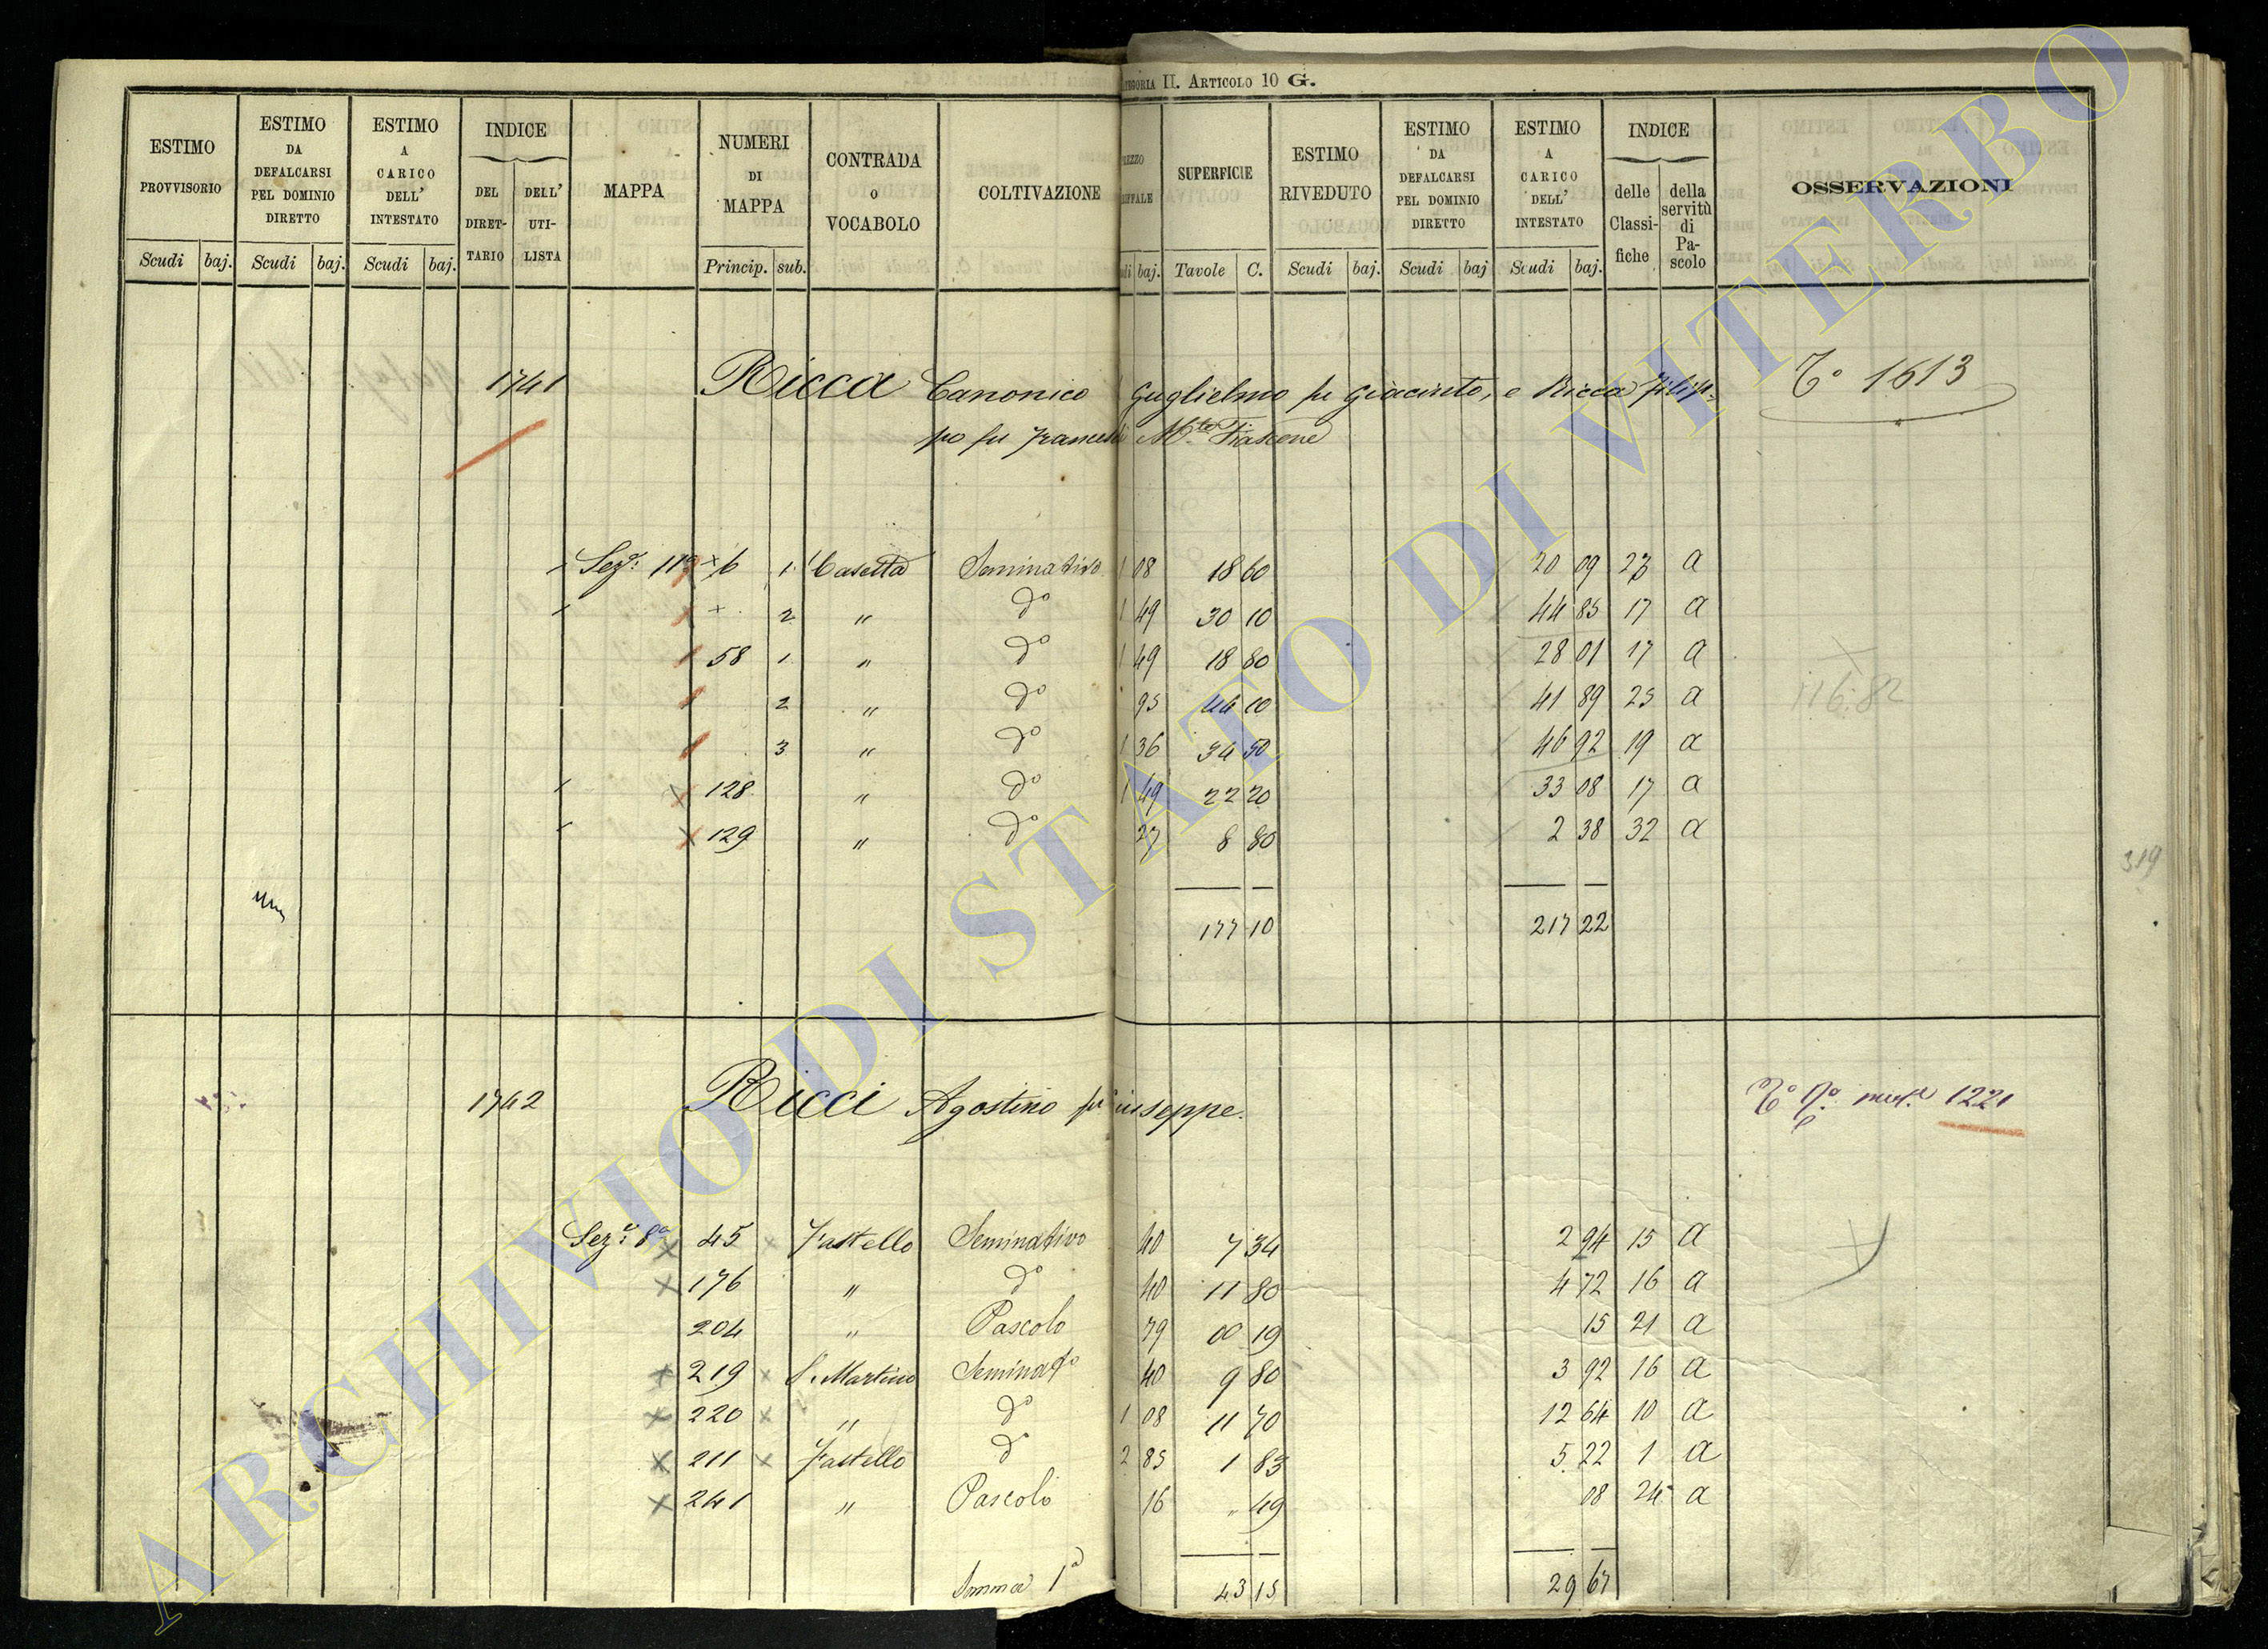 CATEGORIA II. ARTICOLO 10 G.
ESTIMO PROVVISORIO Scudi baj.
ESTIMO DA DEFALCARSI PEL DOMINIO DIRETTO Scudi baj.
ESTIMO A CARICO DELL' INTESTATO Scudi baj.
INDICE DEL DIRET-TARIO DELL' UTI-LISTA
MAPPA
NUMERI DI MAPPA Princip. sub.
CONTRADA O VOCABOLO
COLTIVAZIONE
baj.
SUPERFICIE Tavole C.
ESTIMO RIVEDUTO Scudi baj.
ESTIMO DA DEFALCARSI PEL DOMINIO DIRETTO Scudi baj
ESTIMO A CARICO DELL' INTESTATO Scudi baj.
INDICE delle Classi-fiche della servitù di Pa-scolo
OSSERVAZIONI
1741 Ricca Canonico Guglielmo fu Giacinto, e Ricca Filip= Tº 1613
po fu Francesco Mte Fiascone
Sezº: 11ª 6 1 Casetta Seminativo 1 08 18 60 20 09 23 a
2 " dº 1 49 30 10 44 85 17 a
58 1 " dº 1 49 18 80 28 01 17 a
2 " dº 95 44 10 41 89 25 a
3 " dº 1 36 34 50 46 92 19 a
116:82
128 " dº 1 49 22 20 33 08 17 a
129 " dº 27 8 80 2 38 32 a
319
177 10 217 22
1742 Ricci Agostino fu Giuseppe. 1221
Sezº: 8ª 45 Fastello Seminativo 40 7 34 2 94 15 a
176 " dº 40 11 80 4 72 16 a
204 " Pascolo 79 00 19 15 21 a
219 S. Martino Seminatº 40 9 80 3 92 16 a
220 " dº 1 08 11 70 12 64 10 a
211 Fastello dº 2 85 1 83 5 22 1 a
241 " Pascolo 16 " 49 08 24 a
Somma 1ª 43 15 29 67
ARCHIVIO DI STATO DI VITERBO